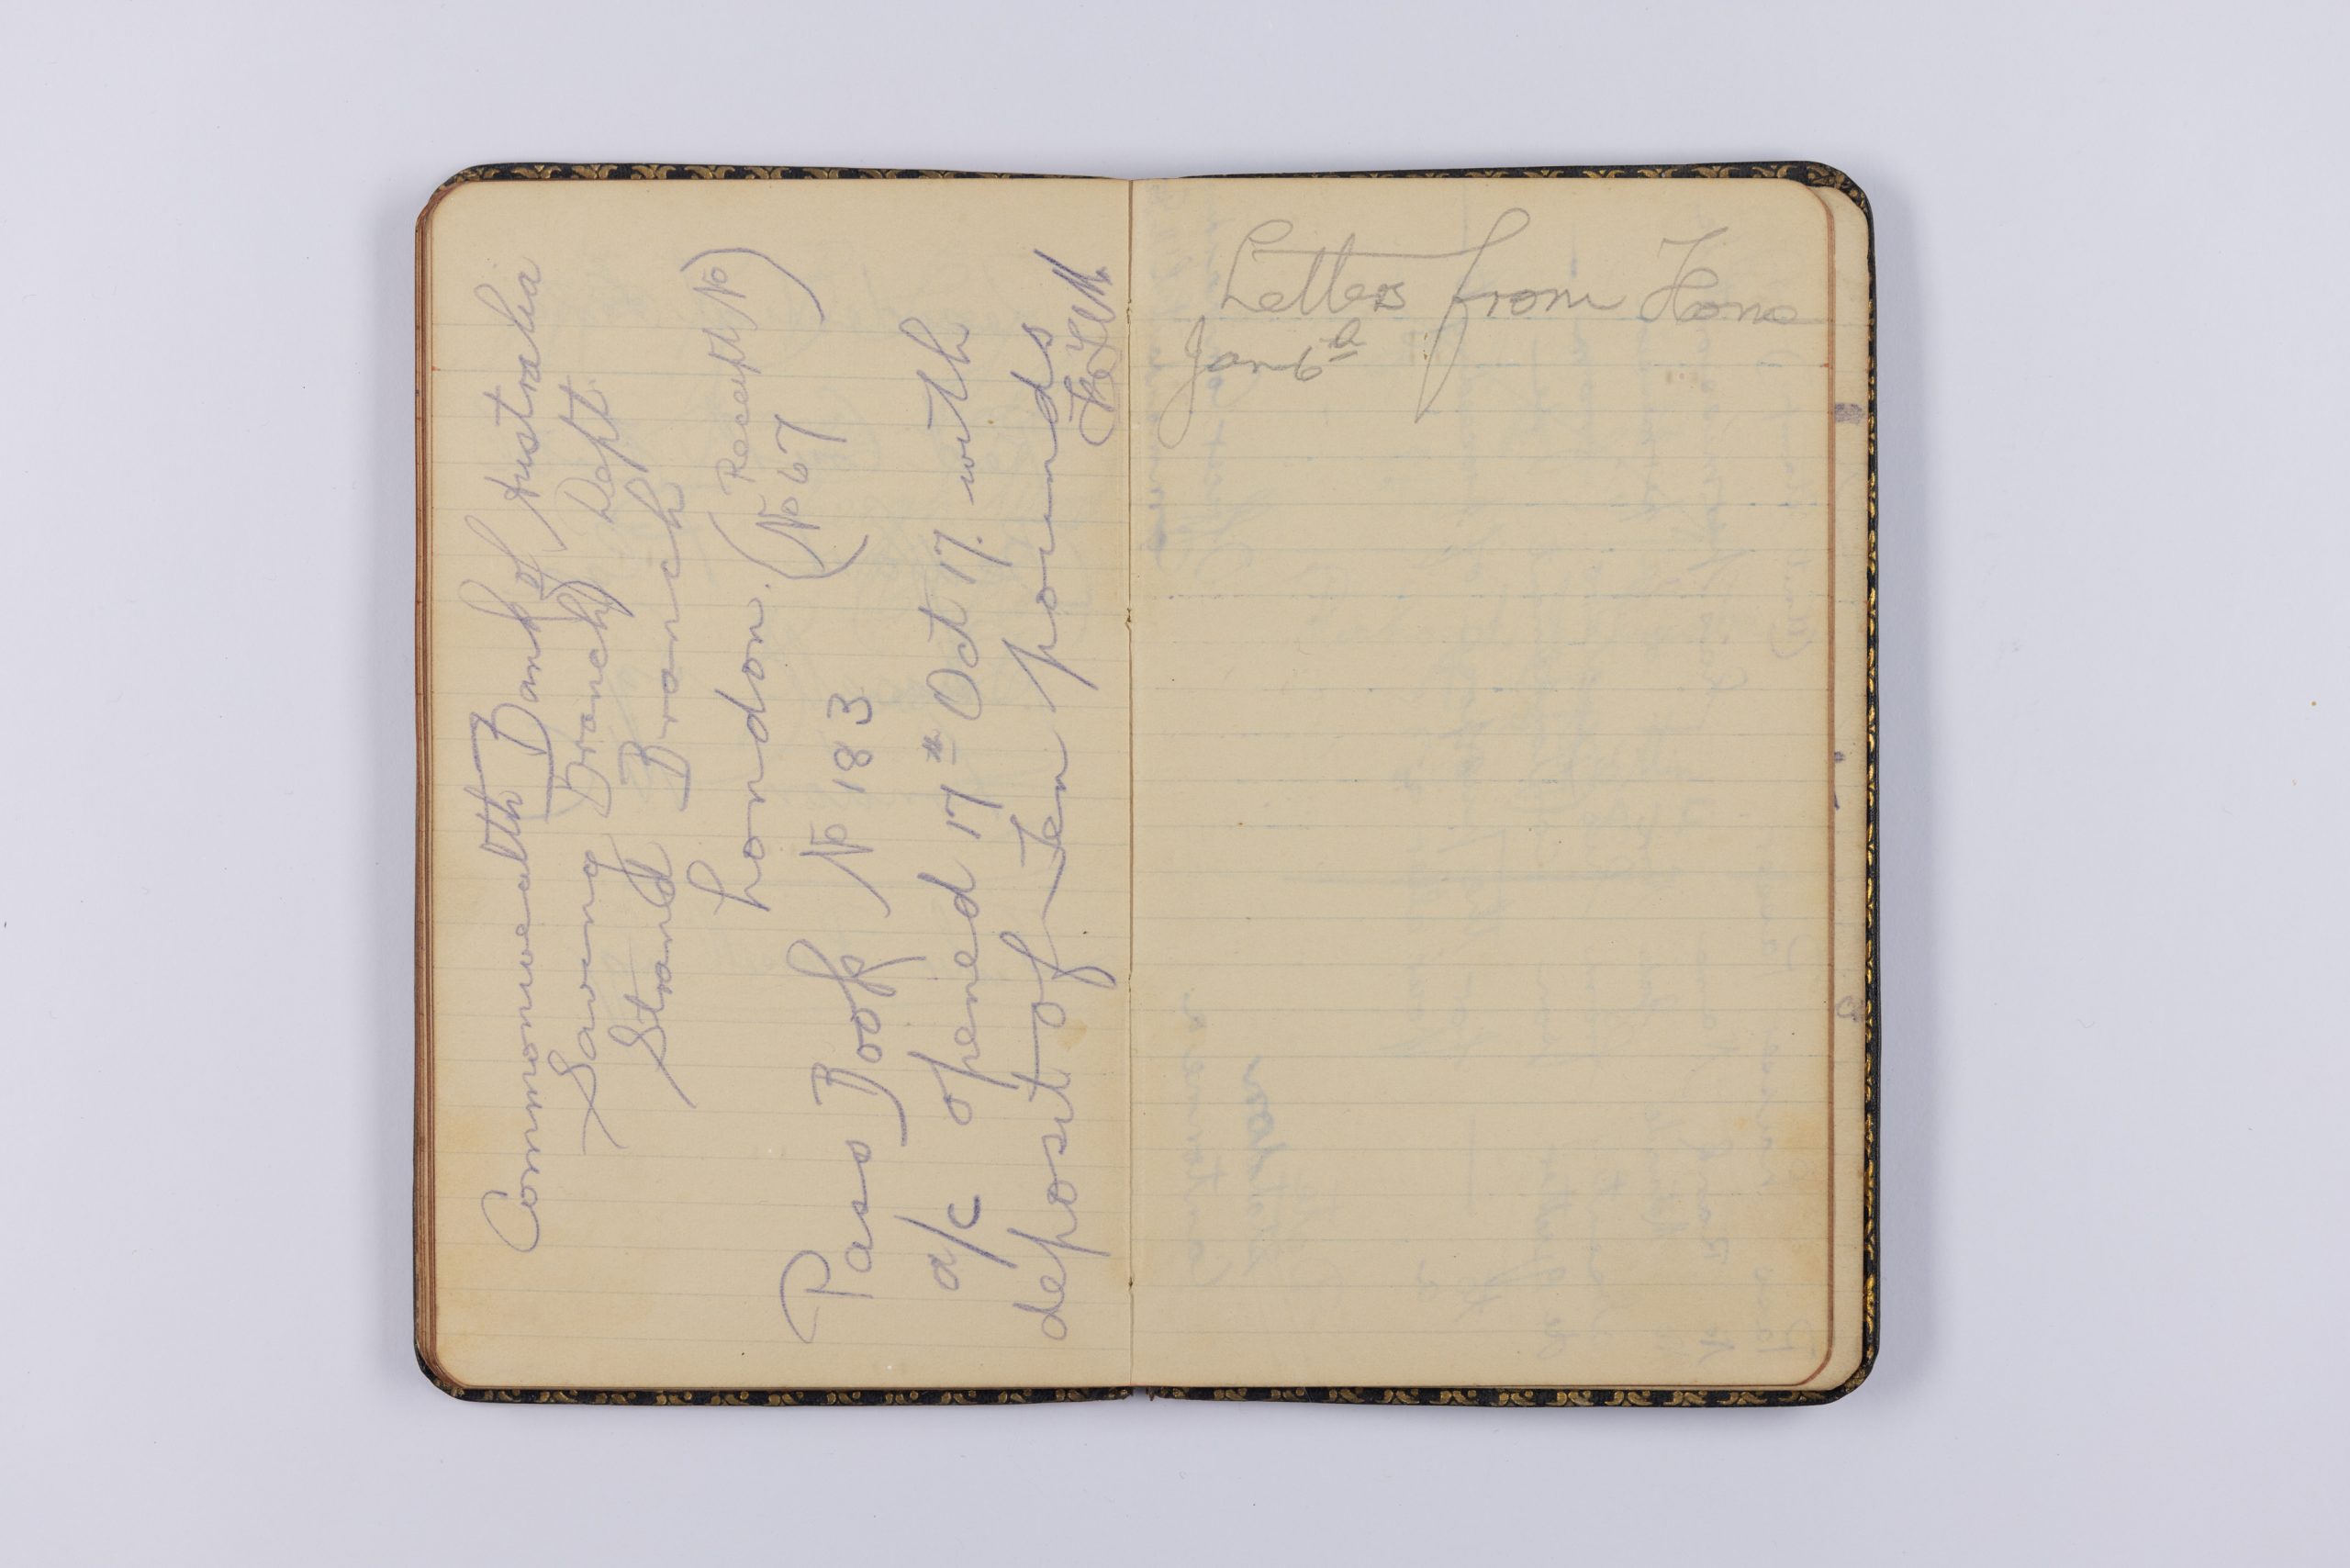 Commonwealth Bank of Australia
Saving Branch Dept.
Strand Branch
London. (Receipt No
No 67)
Pass Book No 183
a/c opened 17th Oct 17. with
deposit of Ten pounds
Letters from Home
Jan 6th